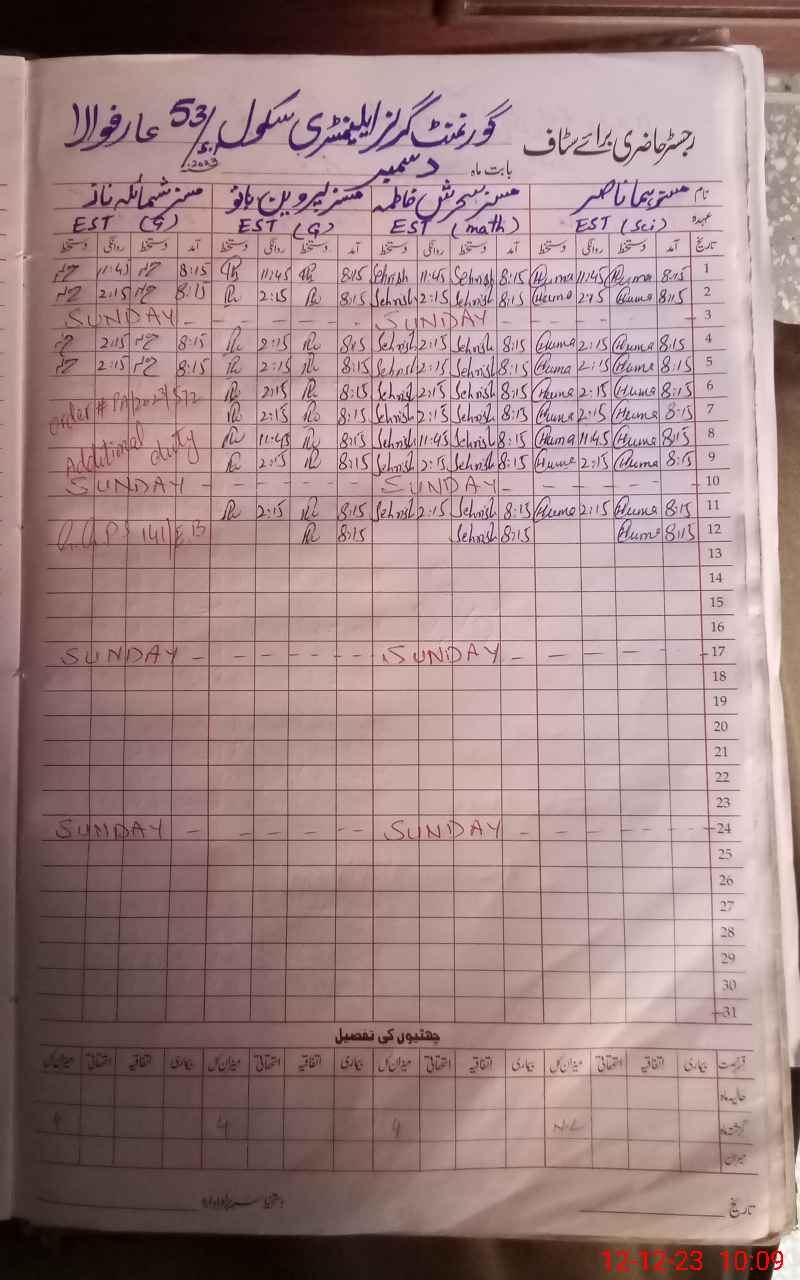 رجسٹر حاضری برائے سٹاف گورنمنٹ گرلز ایلیمنٹری سکول 53/ عارفوالا
بابت ماہ دسمبر 2023
نام مسز ہما ناصر مسز سحرش فاطمہ مسز پروین بانو مسز شمائلہ ناز
عہدہ EST (Sci) EST (math) EST (G) EST (G)
تاریخ آمد دستخط روانگی دستخط آمد دستخط روانگی دستخط آمد دستخط روانگی دستخط آمد دستخط روانگی دستخط
1 8:15 Huma 11:45 Huma 8:15 Sehrish 11:45 Sehrish 8:15 11:45 8:15 11:45
2 8:15 Huma 2:15 Huma 8:15 Sehrish 2:15 Sehrish 8:15 2:15 8:15 2:15
3 SUNDAY - - - - - SUNDAY - - - -
4 8:15 Huma 2:15 Huma 8:15 Sehrish 2:15 Sehrish 8:15 2:15 8:15 2:15
5 8:15 Huma 2:15 Huma 8:15 Sehrish 2:15 Sehrish 8:15 2:15 8:15 2:15
6 8:15 Huma 2:15 Huma 8:15 Sehrish 2:15 Sehrish 8:15 2:15 order # PA/2023/572
7 8:15 Huma 2:15 Huma 8:15 Sehrish 2:15 Sehrish 8:15 2:15
8 8:15 Huma 11:45 Huma 8:15 Sehrish 11:45 Sehrish 8:15 11:45 Additional duty
9 8:15 Huma 2:15 Huma 8:15 Sehrish 2:15 Sehrish 8:15 2:15
10 SUNDAY - - - - - - SUNDAY - - - -
11 8:15 Huma 2:15 Huma 8:15 Sehrish 2:15 Sehrish 8:15 2:15
12 8:15 Huma 8:15 Sehrish 8:15 141/E.B
13
14
15
16
17 SUNDAY - - - - - - SUNDAY - - - - -
18
19
20
21
22
23
24 SUNDAY - - - - - - SUNDAY - - - - -
25
26
27
28
29
30
31
چھٹیوں کی تفصیل
قسم رخصت بیماری اتفاقیہ استحقاقی میزان کل بیماری اتفاقیہ استحقاقی میزان کل بیماری اتفاقیہ استحقاقی میزان کل بیماری اتفاقیہ استحقاقی میزان کل
حالیہ ماہ
گزشتہ ماہ NIL 4 4 4
میزان
تاریخ
12-12-23 10:09